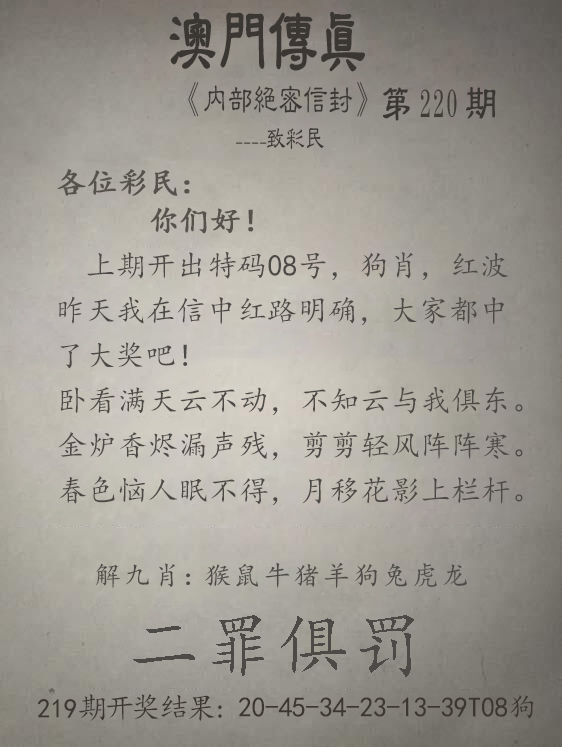 澳門傳真
《内部絕密信封》第220期
----致彩民
各位彩民：
你们好！
上期开出特码08号，狗肖，红波
昨天我在信中红路明确，大家都中
了大奖吧！
卧看满天云不动，不知云与我俱东。
金炉香烬漏声残，剪剪轻风阵阵寒。
春色恼人眠不得，月移花影上栏杆。
解九肖：猴鼠牛猪羊狗兔虎龙
二罪俱罚
219期开奖结果：20-45-34-23-13-39T08狗